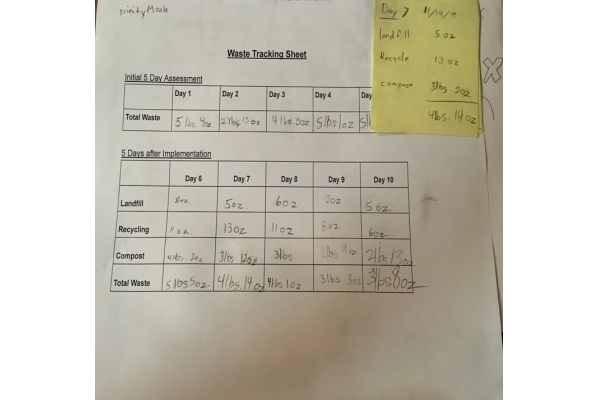 Trinity Monk
Waste Tracking Sheet
Initial 5 Day Assessment
Day 1 Day 2 Day 3 Day 4 Da
Total Waste 5 lbs 4oz 2 lbs 13oz 4 lbs 5 lbs 1oz 5l
Day 7 11/19/9
landfill 5 oz
Recycle 13 oz
compost 3lbs. 2oz
4lbs. 14 oz
5 Days after Implementation
Day 6 Day 7 Day 8 Day 9 Day 10
Landfill 8oz. 5oz. 6oz 2oz 5oz
Recycling 11 oz. 13oz 11oz 8oz 6oz
Compost 4lbs. 2oz 3lbs 3lbs 2lbs 9oz 2lbs 13oz
Total Waste 5lbs 5oz. 4lbs. 14.oz 4lbs 1oz 3lbs 3oz 3lbs 8oz